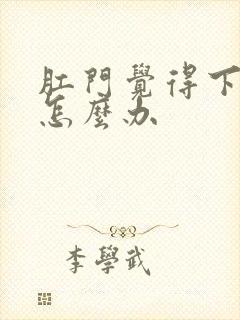 肛門覺得下
怎麼办
李學武